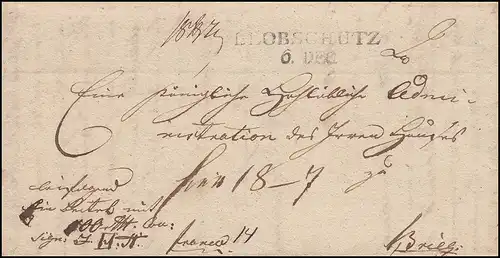 LEOBSCHÜTZ
6. DEC.
Eine Königliche Hochlöbliche Admi-
nistration des Irren Hauses
18-7
zu
beiliegend
ein Beutel mit
100 rth.
Sign: I. H.
franco 14
Brieg.